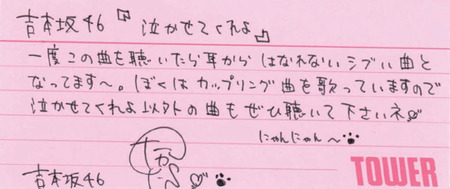 吉本坂46 『泣かせてくれよ』
一度この曲を聴いたら耳から はなれない シブい曲と
なってます〜。ぼくは カップリング曲を歌っていますので
泣かせてくれよ 以外の曲も ぜひ聴いて下さいネ
にゃんにゃん〜
吉本坂46
TOWER